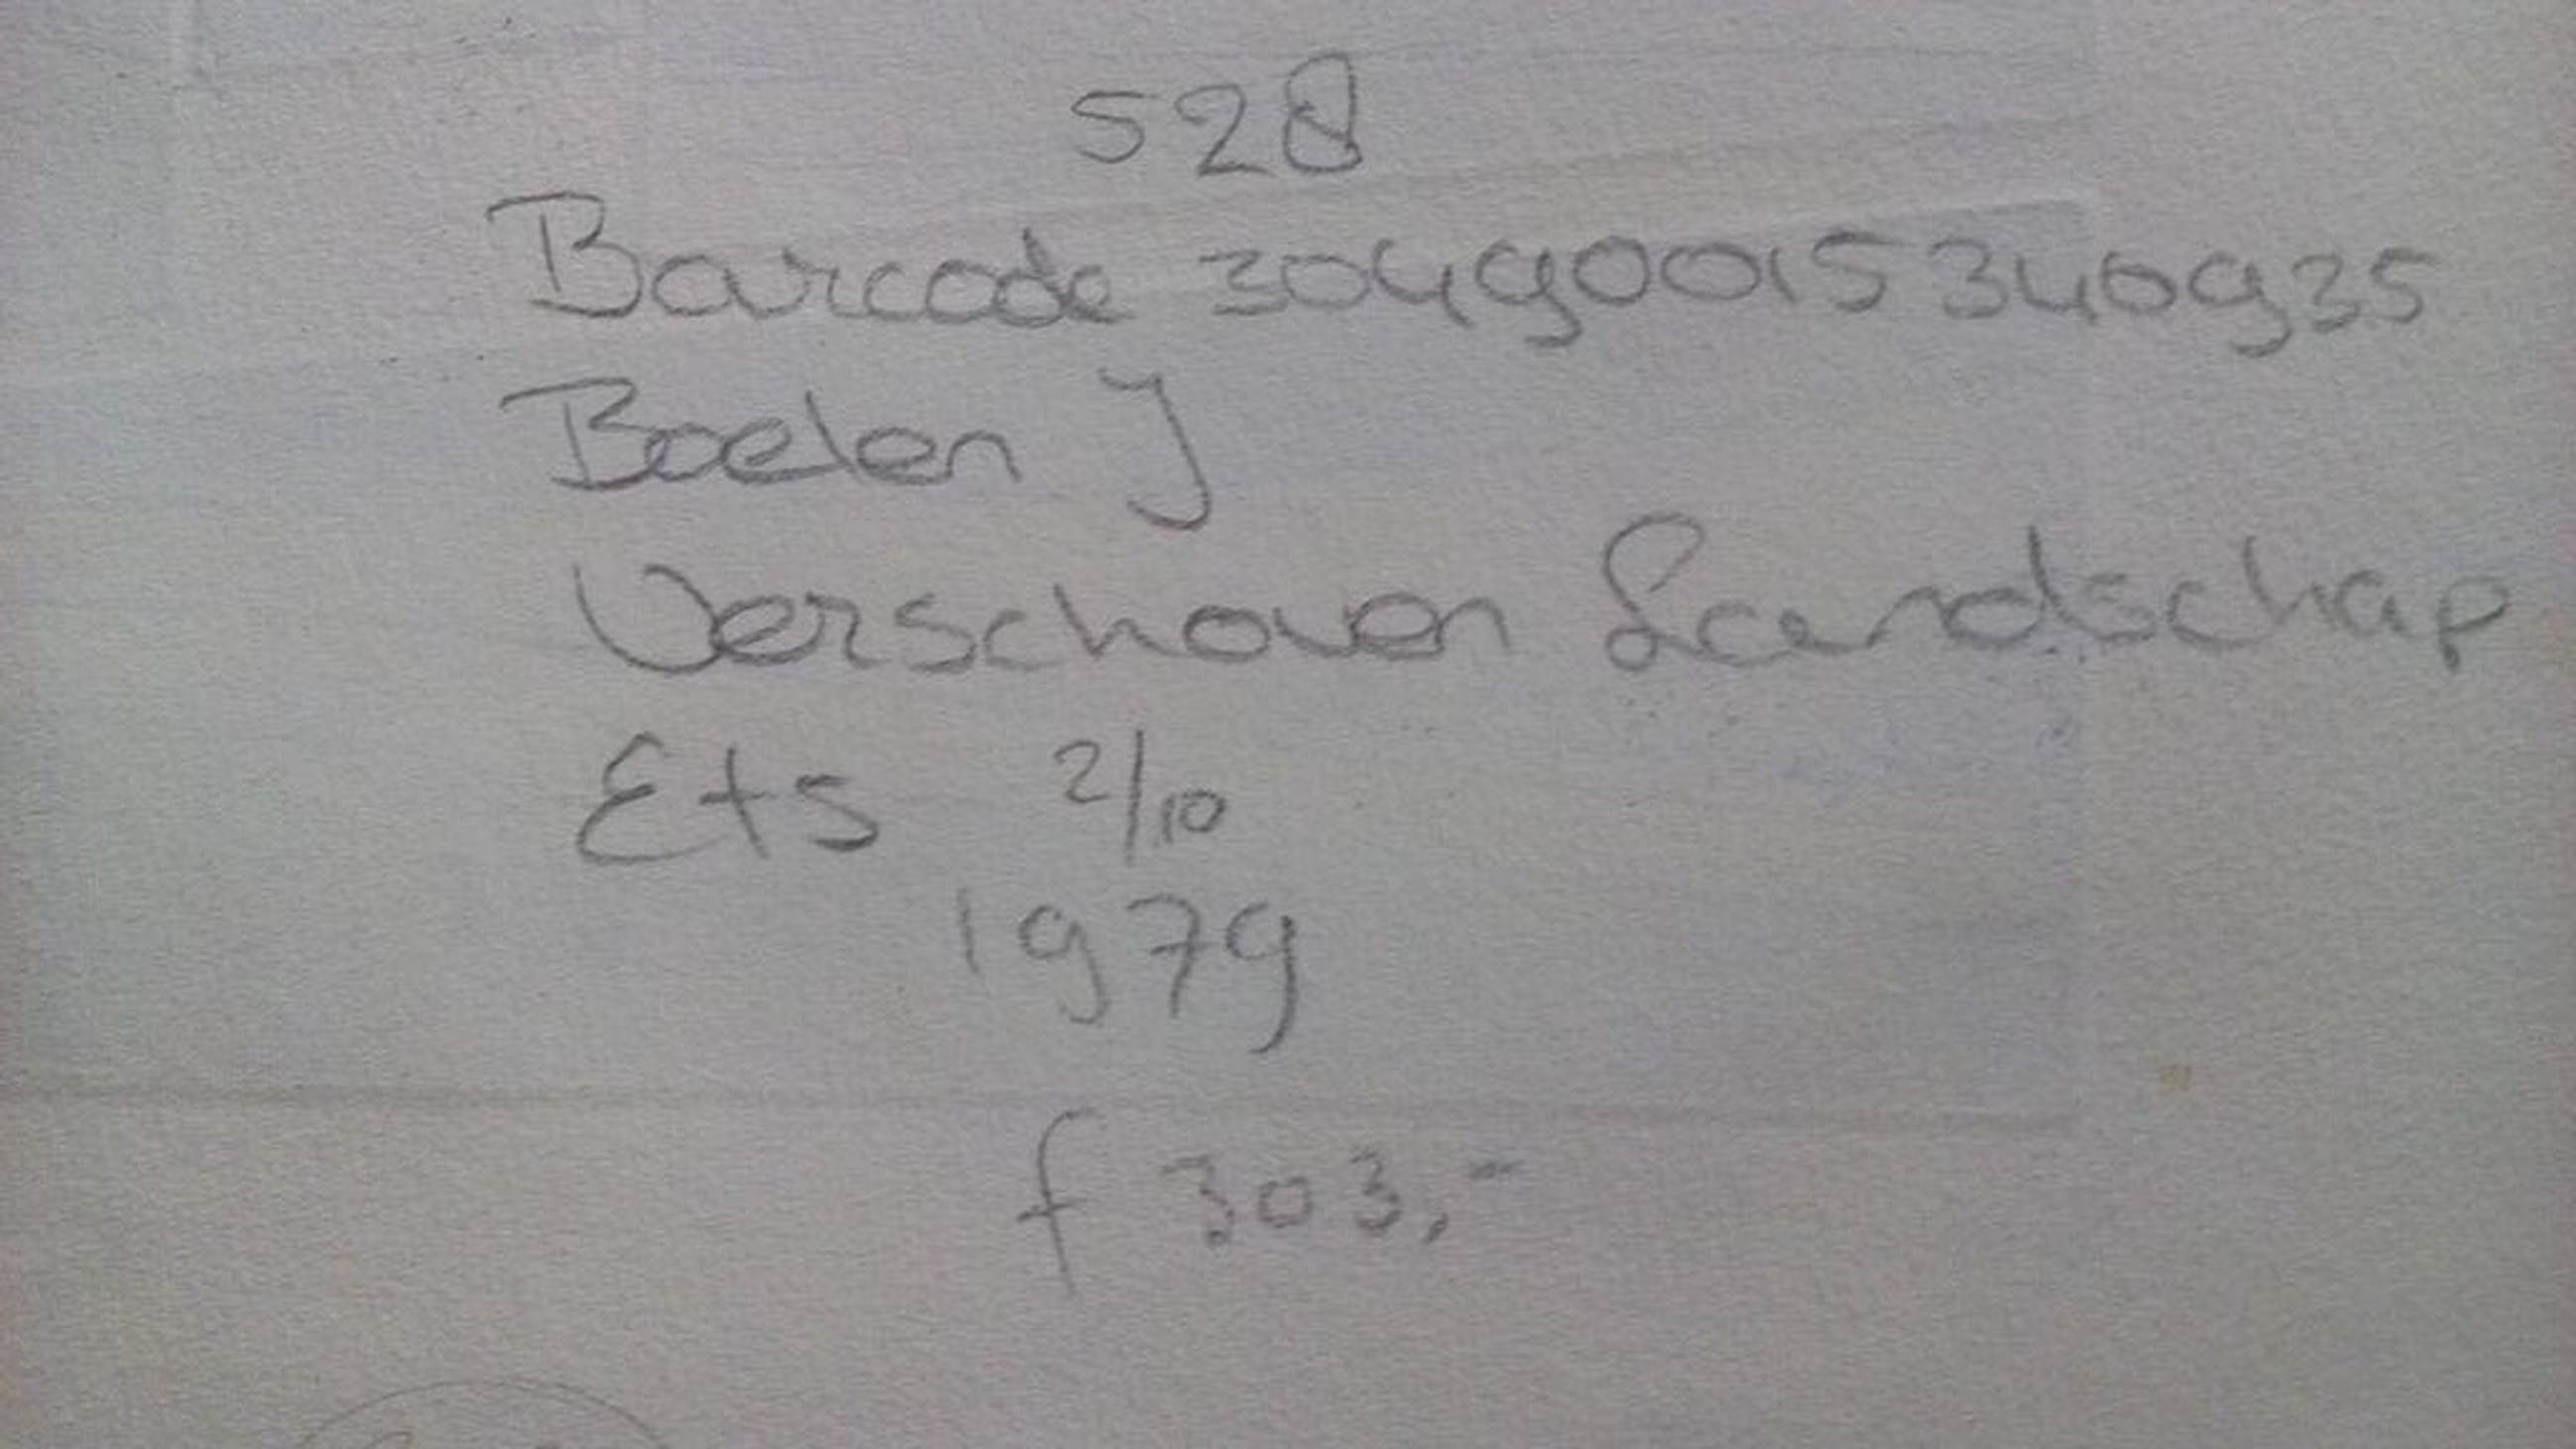 528
Barcode 30490015340935
Boelen J
Verschoven Landschap
Ets 2/10
1979
f 303,-